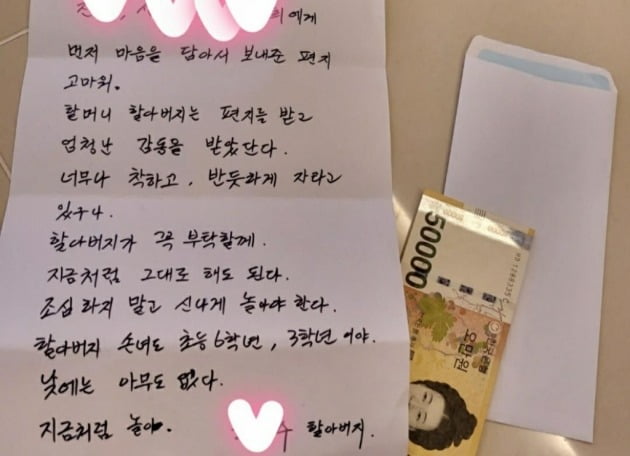 에게
먼저 마음을 담아서 보내준 편지
고마워.
할머니 할아버지는 편지를 받고
엄청난 감동을 받았단다.
너무나 착하고, 반듯하게 자라고
있구나.
할아버지가 꼭 부탁할께.
지금처럼 그대로 해도 된다.
조심 하지 말고 신나게 놀아야 한다.
할아버지 손녀도 초등6학년, 3학년 이야.
낮에는 아무도 없다.
지금처럼 놀아.
할아버지.
50000
50000
한국은행
오만원